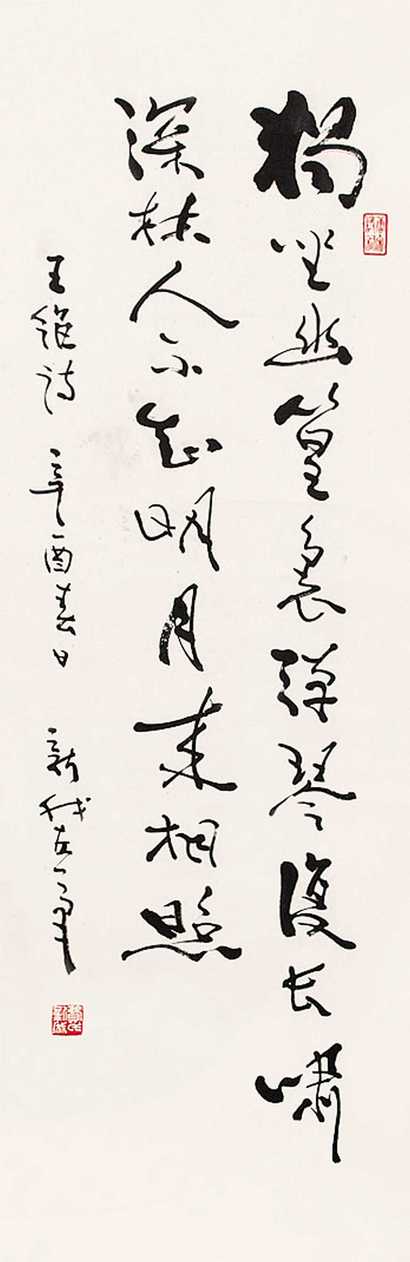 獨坐幽篁裏彈琴復长嘯
深林人不知明月来相照
王維詩 辛酉春日 新我左筆